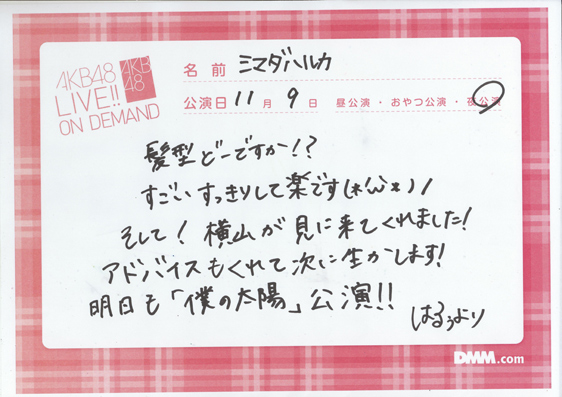 AKB48
LIVE!!
ON DEMAND
AKB
48
名前 シマダハルカ
公演日 11月9日 昼公演・おやつ公演・夜公演
髪型どーですか!?
すごいすっきりして楽です(*'ω'*)ノ
そして!横山が見に来てくれました!
アドバイスもくれて次に生かします!
明日も「僕の太陽」公演!!
はるぅより
DMM.com